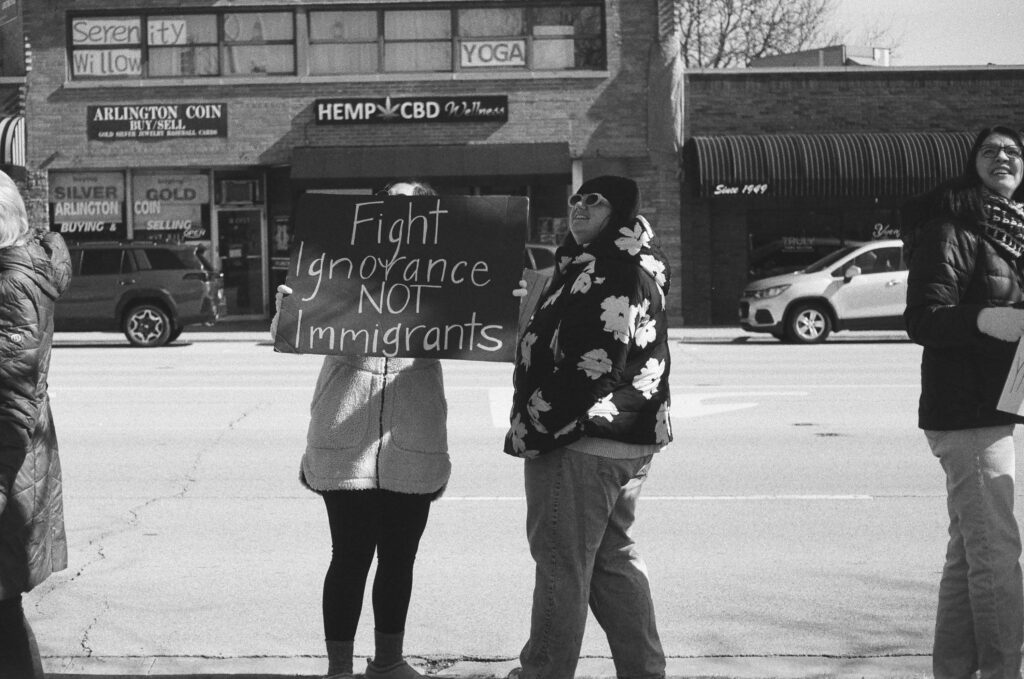 Serenity
Willow
YOGA
ARLINGTON COIN
BUY/SELL
GOLD SILVER JEWELRY BASEBALL CARDS
HEMP CBD Wellness
buying
SILVER
ARLINGTON
BUYING &
buying
GOLD
COIN
SELLING
OPEN
Since 1949
TRULY
Fight
Ignorance
NOT
Immigrants